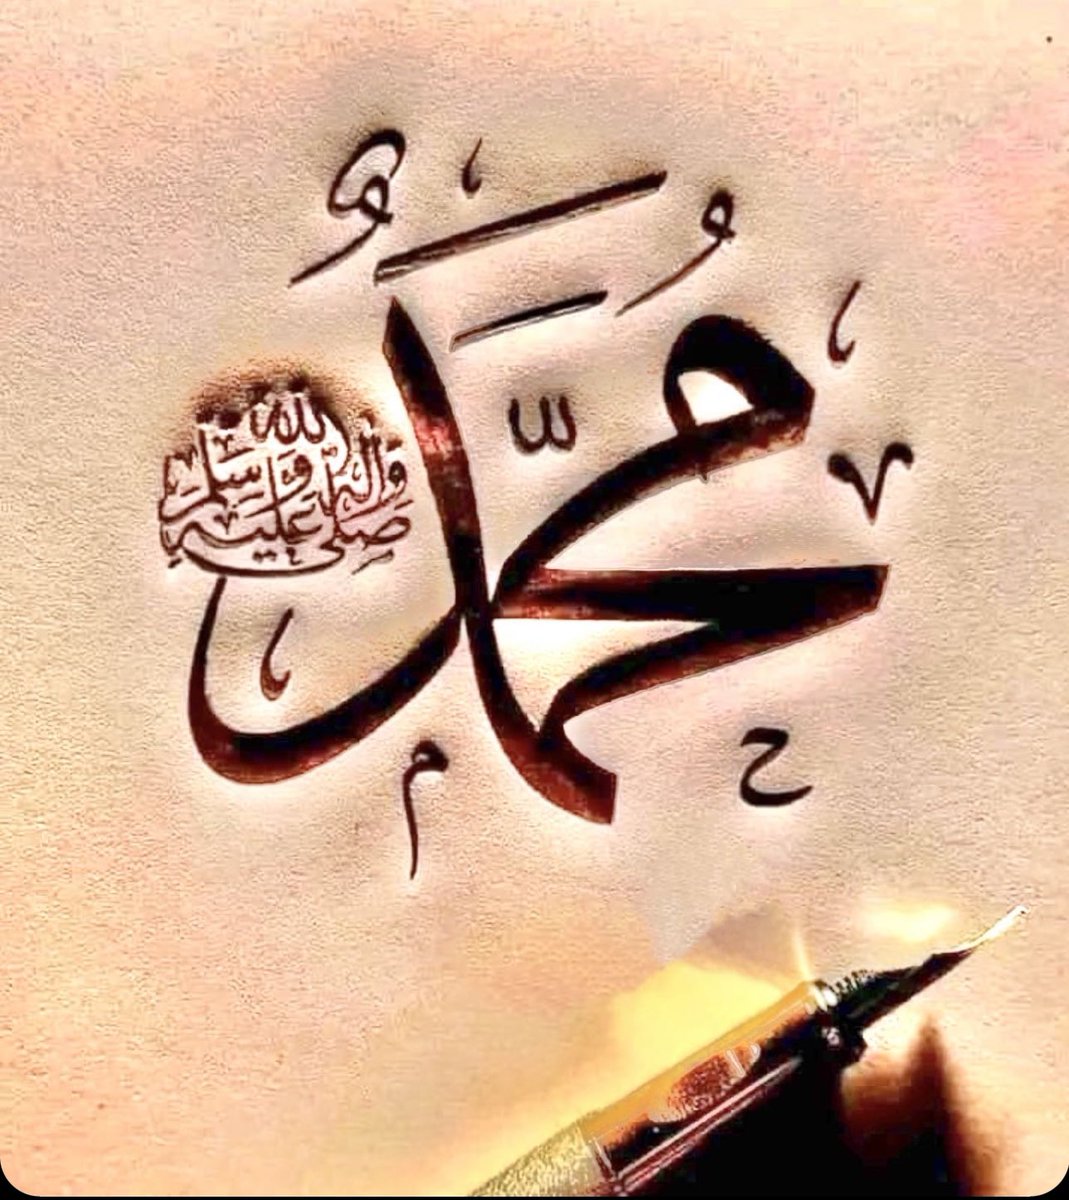 مُحَمَّدٌ
صلى الله عليه واله وسلم